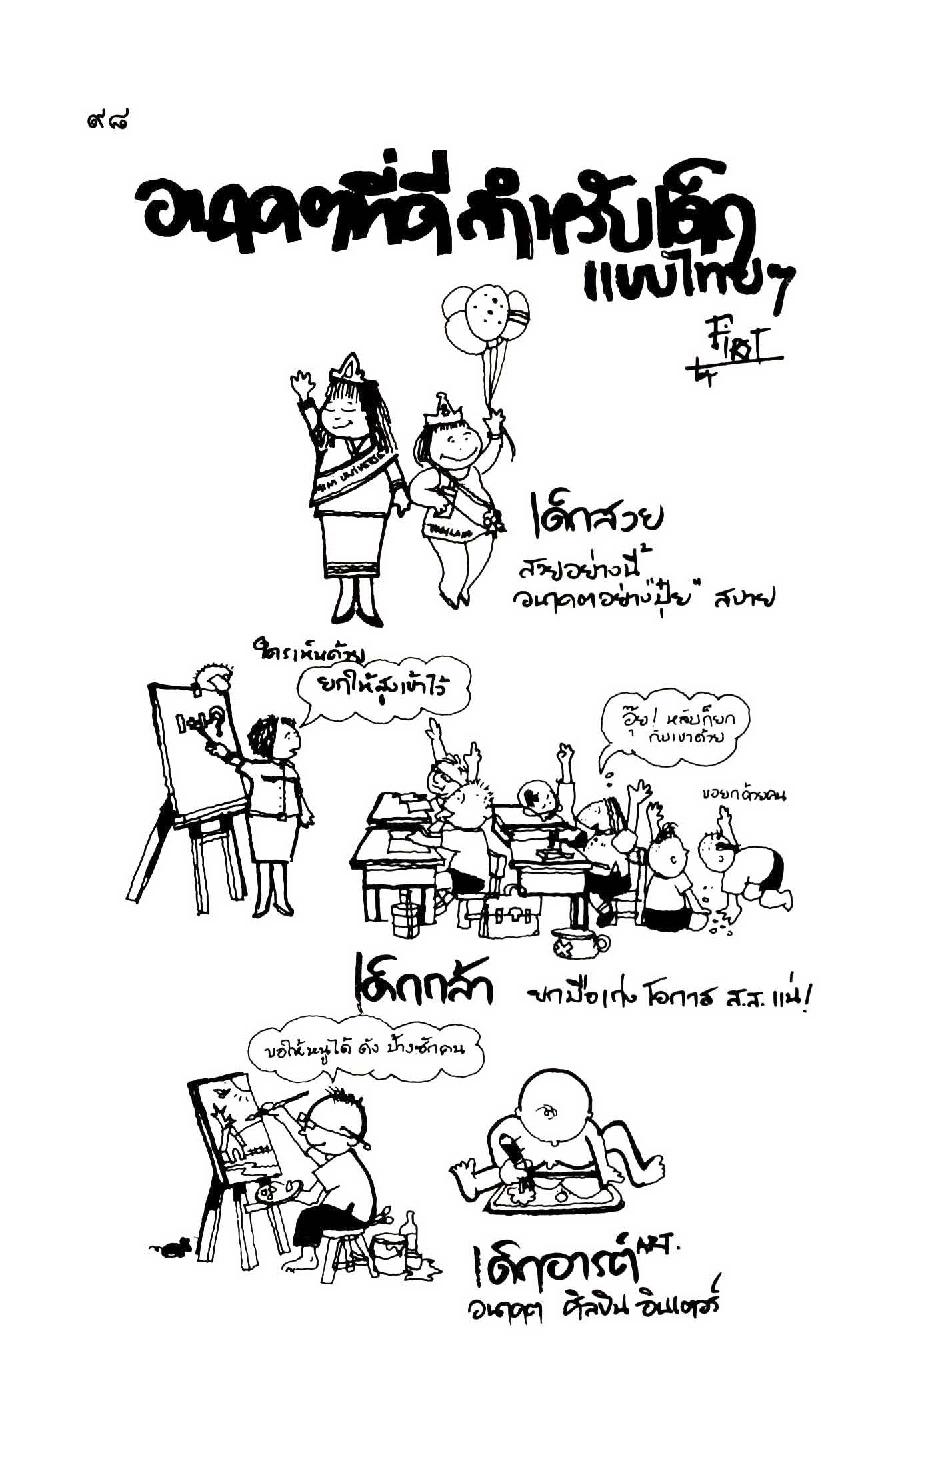 ๙๘
อนาคตที่ดีสำหรับเด็ก
แบบไทยๆ
by FIRST
เด็กสวย
สวยอย่างนี้
อนาคตอย่าง"ปุ๋ย" สบาย
THAILAND
ใครเห็นด้วย
ยกให้สูงเข้าไว้
1+1=?
อุ๊ย! หลับก็ยก
กับเขาด้วย
ขอยกด้วยคน
เด็กกล้า ยกมือเก่ง โอกาส ส.ส. แน่!
ขอให้หนูได้ ดัง บ้างซักคน
เด็กอารต์ ART.
อนาคต ศิลปิน อินเตอร์